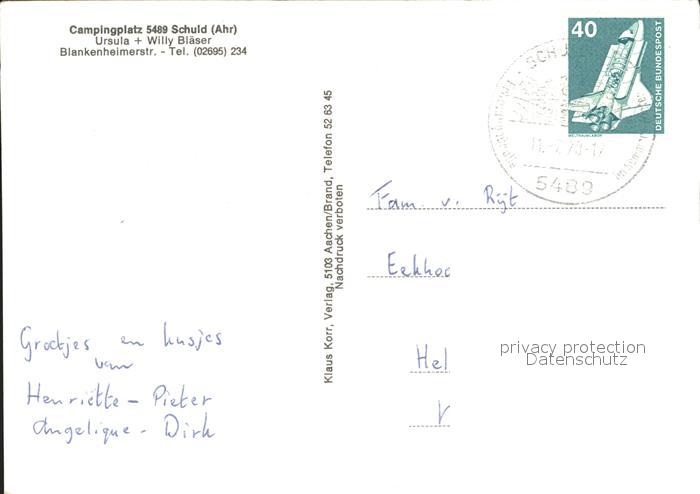 Campingplatz 5489 Schuld (Ahr)
Ursula + Willy Bläser
Blankenheimerstr. - Tel. (02695) 234
40
DEUTSCHE BUNDESPOST
WELTRAUMLABOR
5489
Klaus Korr, Verlag, 5103 Aachen/Brand, Telefon 52 63 45
Nachdruck verboten
Fam. v. Rijt
Eekhoo
Hel
V
privacy protection
Datenschutz
Groetjes en kusjes
van
Henriëtte - Pieter
Angelique - Dirk